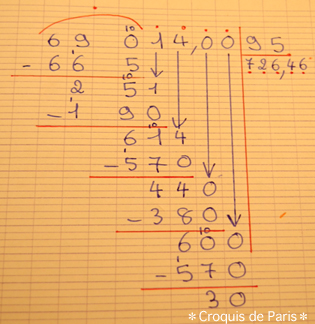 69 014,00 95
- 66 5 726,46
2 51
- 1 90
614
- 570
440
- 380
600
- 570
30
* Croquis de Paris *